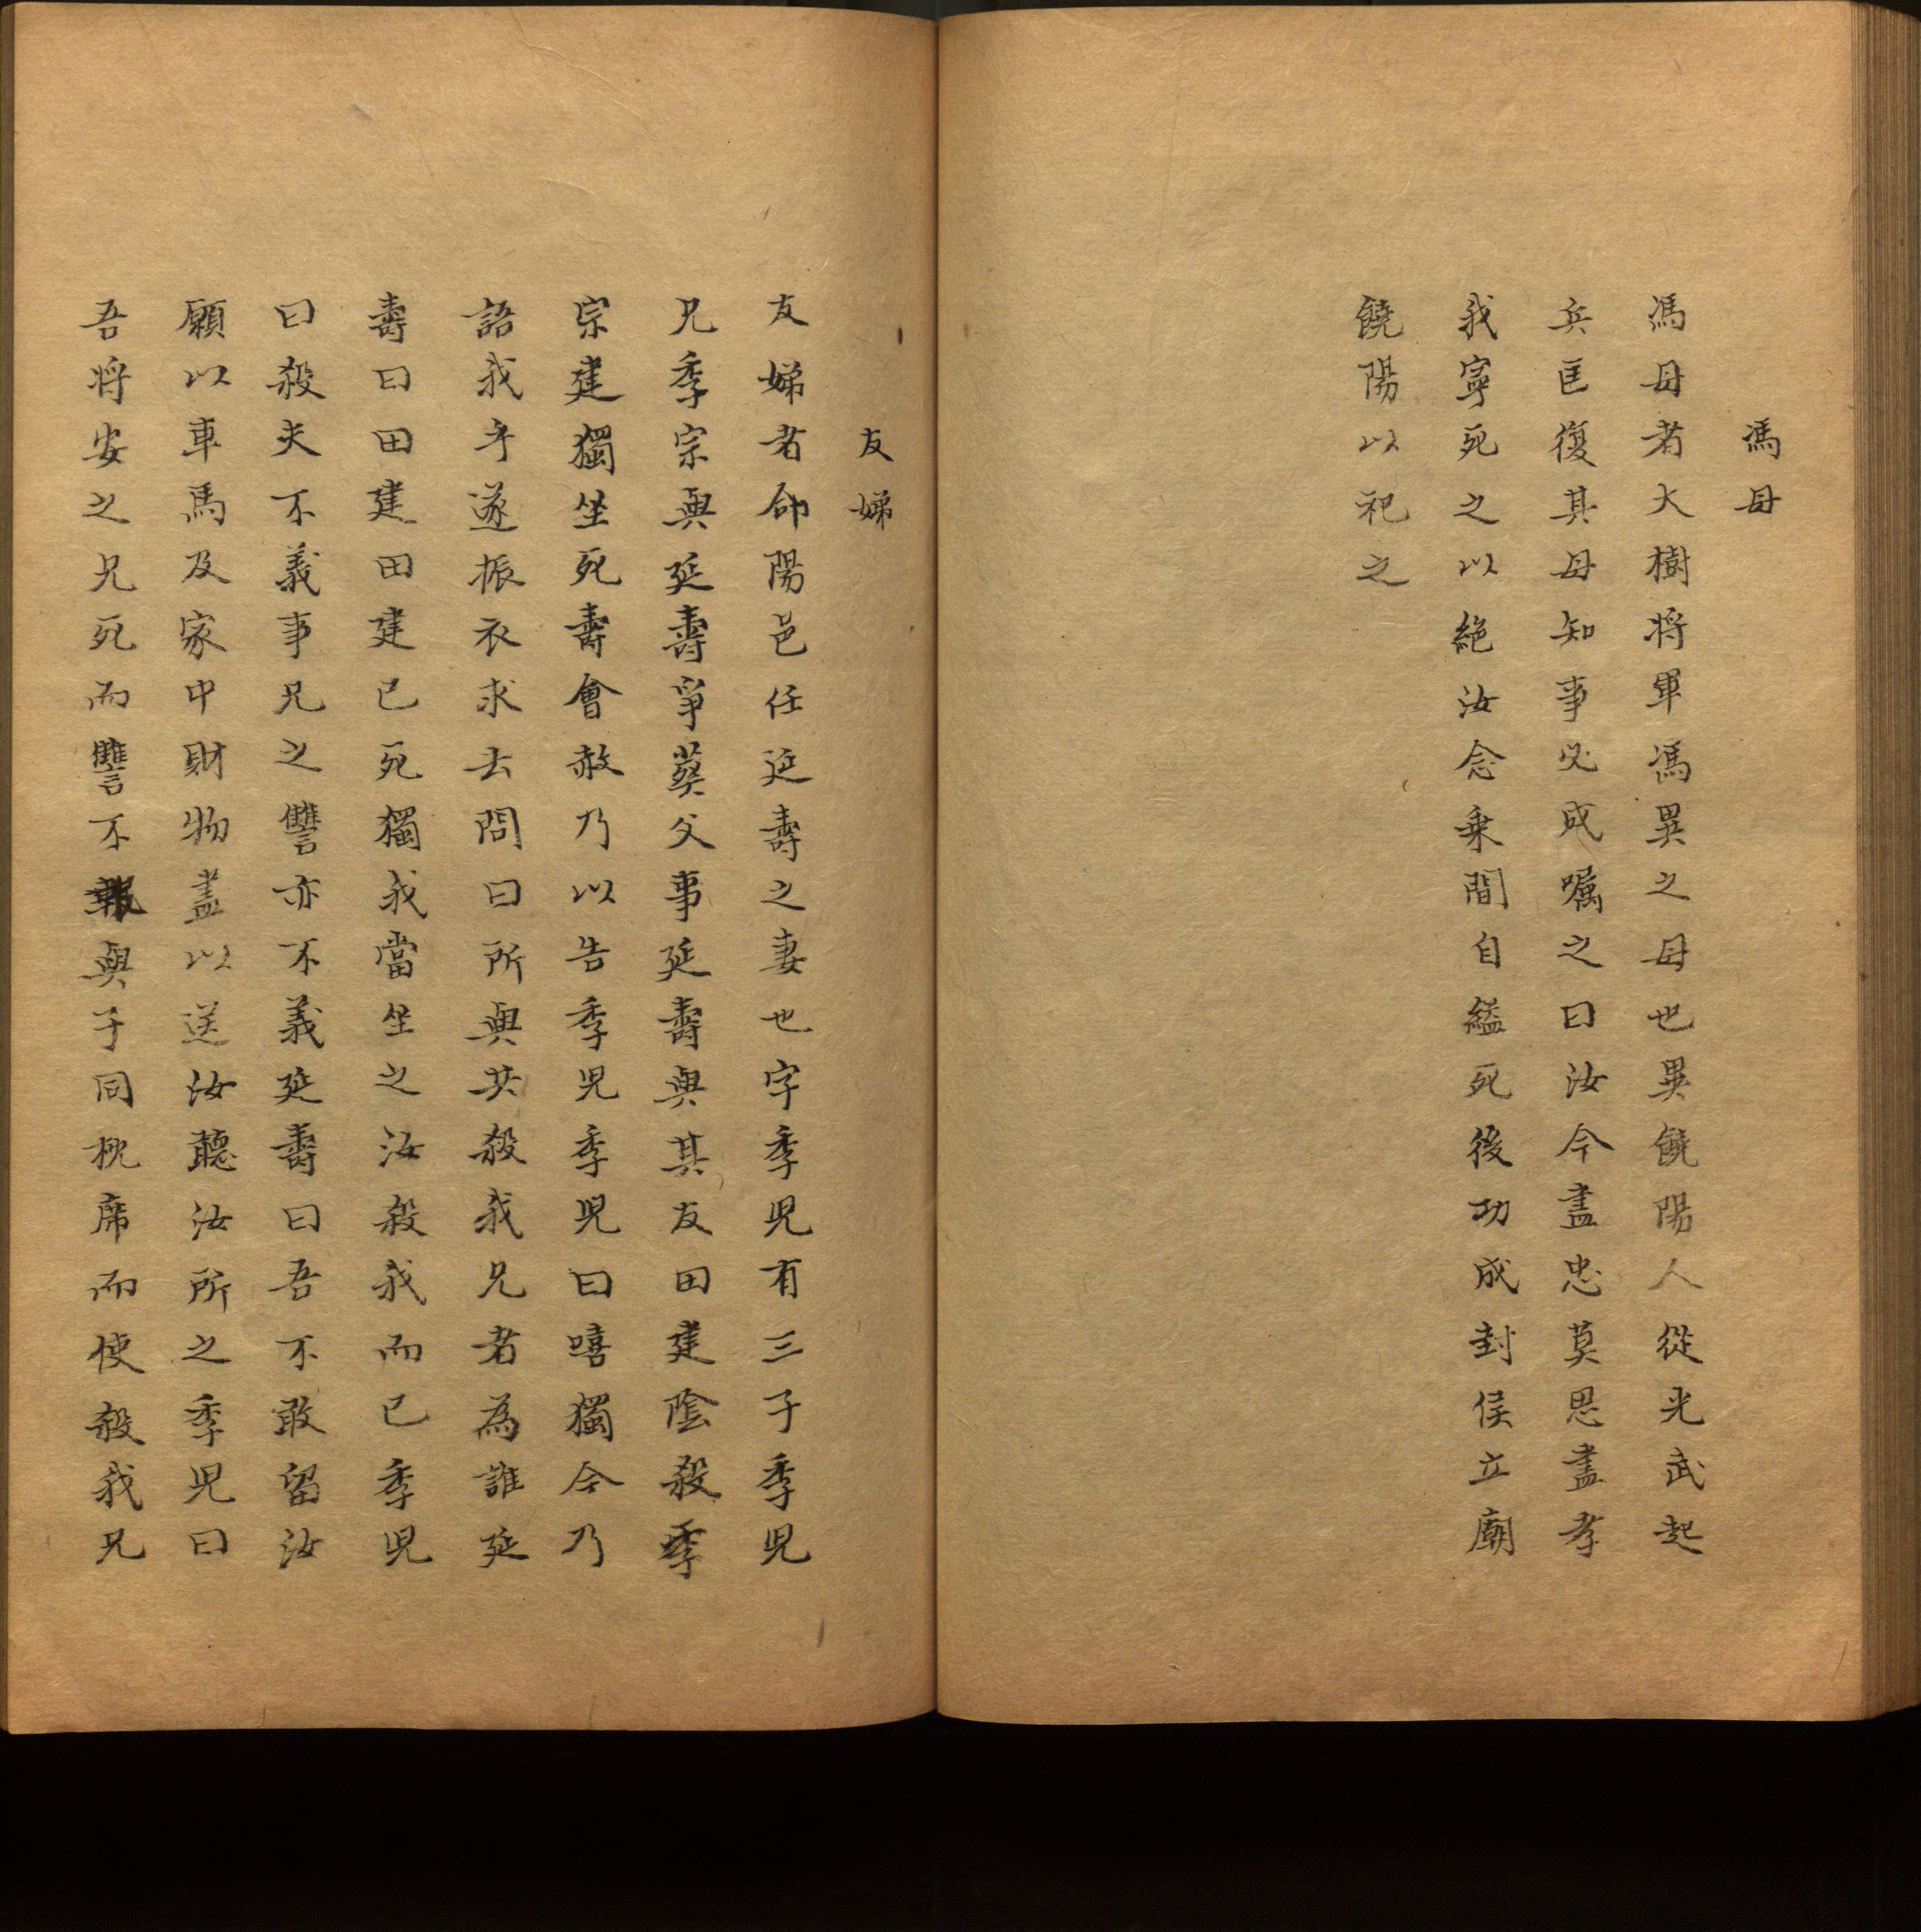 馮母
馮母者大樹将軍馮異之母也異饒陽人從光武起
兵匡復其母知事必成嘱之曰汝今盡忠莫思盡孝
我寧死之以絶汝念乗間自縊死後功成封侯立廟
饒陽以祀之
友娣
友娣者郃陽邑任延壽之妻也字季児有三子季児
兄季宗與延壽爭葬父事延壽與其友田建陰殺季
宗建獨坐死壽會赦乃以告季児季児曰嘻獨今乃
語我乎遂振衣求去問曰所與共殺我兄者為誰延
壽曰田建田建已死獨我當坐之汝殺我而已季児
曰殺夫不義事兄之讐亦不義延壽曰吾不敢留汝
願以車馬及家中財物盡以送汝聽汝所之季児曰
吾将安之兄死而讐不報與子同枕席而使殺我兄